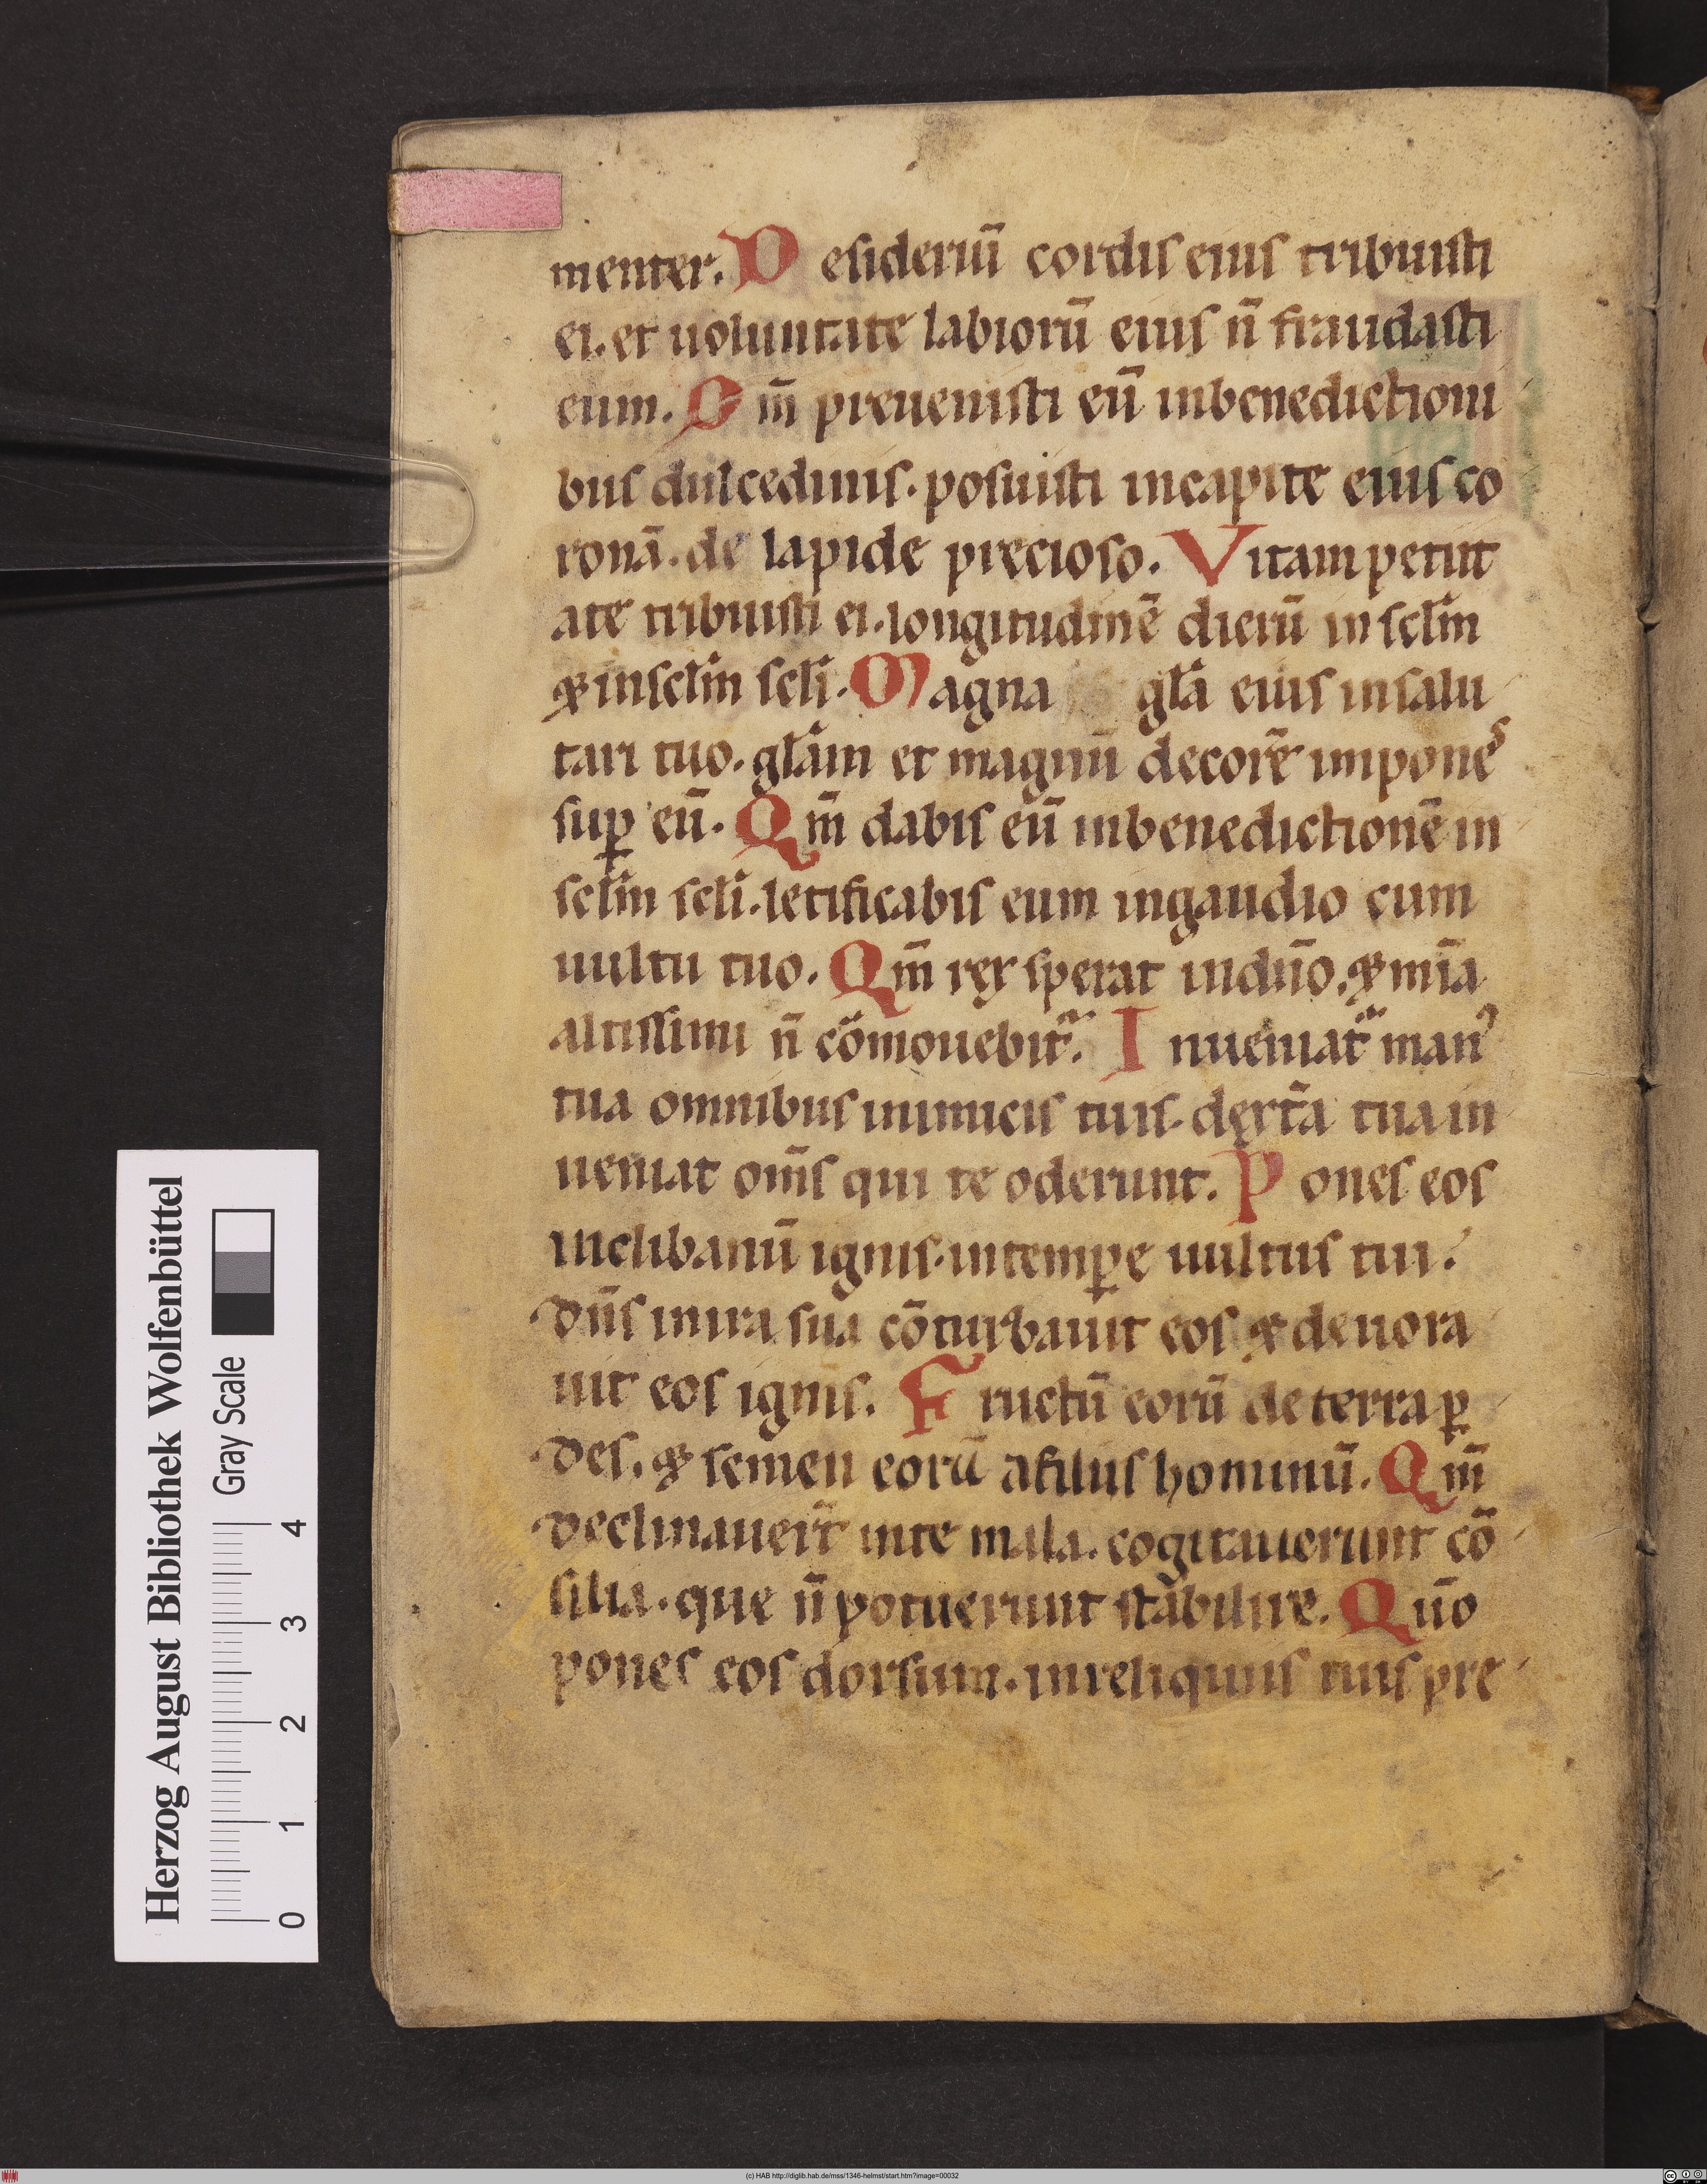 menter. D esideriū cordis eius tribuisti
ei. et uoluntatē labiorū eius n̄ fraudasti
eum. Q m̄ preuenisti eū inbenedictioni
bus dulcedinis. posuisti incapite eius co
ronā. de lapide precioso. Vitam petiit
ate tribuisti ei. longitudinē dierū in sclm̄
⁊ insclm̄ scli. Magna gl̄a eius insalu
tari tuo. gl̄am et magnū decorē imponeˢ
suꝑ eū. Qm̄ dabis eū inbenedictionē in
sclm̄ scli. letificabis eum ingaudio cum
uultu tuo. Qm̄ rex sperat indn̄o. ⁊ mīa
altissimi n̄ cōmouebit᷑. I nueniat᷑ manꝰ
tua omnibus inimicis tuis. dext̄a tua in
ueniat om̄s qui te oderunt. P ones eos
inclibanū ignis. intemꝑe uultus tui.
dn̄s inira sua cōturbauit eos ⁊ deuora
uit eos ignis. F ructū eorū de terra ꝑ
des. ⁊ semen eorū afiliis hominū. Qm̄
declinauer̄t inte mala. cogitauerunt cō
silia. que n̄ potuerunt stabilire. Qn̄o
pones eos dorsum. inreliquiis tuis pre
Herzog August Bibliothek Wolfenbüttel
Gray Scale
0 1 2 3 4
(c) HAB http://diglib.hab.de/mss/1346-helmst/start.htm?image=00032